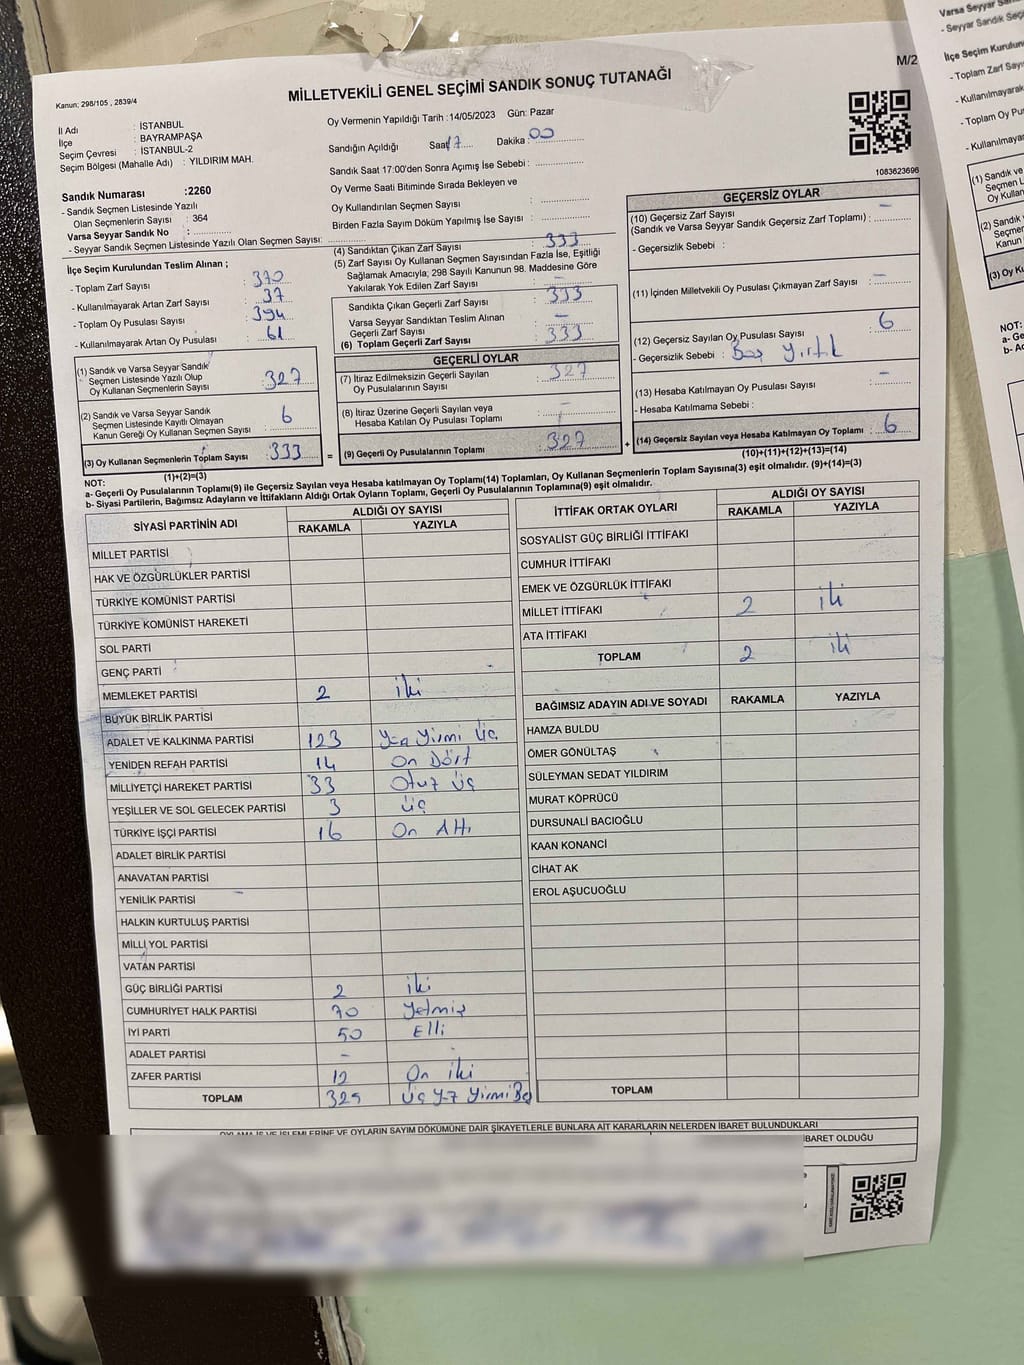 M/2
Kanun; 298/105 , 2839/4
MİLLETVEKİLİ GENEL SEÇİMİ SANDIK SONUÇ TUTANAĞI
İl Adı : İSTANBUL
İlçe : BAYRAMPAŞA
Seçim Çevresi : İSTANBUL-2
Seçim Bölgesi (Mahalle Adı) : YILDIRIM MAH.
Oy Vermenin Yapıldığı Tarih :14/05/2023 Gün: Pazar
Sandığın Açıldığı Saat 17 Dakika : 00
Sandık Saat 17:00'den Sonra Açımış İse Sebebi :
Oy Verme Saati Bitiminde Sırada Bekleyen ve
Oy Kullandırılan Seçmen Sayısı :
Birden Fazla Sayım Döküm Yapılmış İse Sayısı :
1083623696
Sandık Numarası :2260
- Sandık Seçmen Listesinde Yazılı
Olan Seçmenlerin Sayısı : 364
Varsa Seyyar Sandık No :
- Seyyar Sandık Seçmen Listesinde Yazılı Olan Seçmen Sayısı:
İlçe Seçim Kurulundan Teslim Alınan ;
- Toplam Zarf Sayısı : 370
- Kullanılmayarak Artan Zarf Sayısı : 37
- Toplam Oy Pusulası Sayısı : 394
- Kullanılmayarak Artan Oy Pusulası : 61
(1) Sandık ve Varsa Seyyar Sandık
Seçmen Listesinde Yazılı Olup
Oy Kullanan Seçmenlerin Sayısı : 327
(2) Sandık ve Varsa Seyyar Sandık
Seçmen Listesinde Kayıtlı Olmayan
Kanun Gereği Oy Kullanan Seçmen Sayısı : 6
(3) Oy Kullanan Seçmenlerin Toplam Sayısı : 333
(1)+(2)=(3)
(4) Sandıktan Çıkan Zarf Sayısı : 333
(5) Zarf Sayısı Oy Kullanan Seçmen Sayısından Fazla İse, Eşitliği
Sağlamak Amacıyla; 298 Sayılı Kanunun 98. Maddesine Göre
Yakılarak Yok Edilen Zarf Sayısı : -
Sandıkta Çıkan Geçerli Zarf Sayısı : 333
Varsa Seyyar Sandıktan Teslim Alınan
Geçerli Zarf Sayısı : -
(6) Toplam Geçerli Zarf Sayısı : 333
GEÇERLİ OYLAR
(7) İtiraz Edilmeksizin Geçerli Sayılan
Oy Pusulalarının Sayısı : 327
(8) İtiraz Üzerine Geçerli Sayılan veya
Hesaba Katılan Oy Pusulası Toplamı : -
= (9) Geçerli Oy Pusulalarının Toplamı : 327
GEÇERSİZ OYLAR
(10) Geçersiz Zarf Sayısı
(Sandık ve Varsa Seyyar Sandık Geçersiz Zarf Toplamı) : -
- Geçersizlik Sebebi :
(11) İçinden Milletvekili Oy Pusulası Çıkmayan Zarf Sayısı : -
(12) Geçersiz Sayılan Oy Pusulası Sayısı : 6
- Geçersizlik Sebebi : Boş yırtık
(13) Hesaba Katılmayan Oy Pusulası Sayısı : -
- Hesaba Katılmama Sebebi :
+ (14) Geçersiz Sayılan veya Hesaba Katılmayan Oy Toplamı : 6
(10)+(11)+(12)+(13)=(14)
NOT:
a- Geçerli Oy Pusulalarının Toplamı(9) ile Geçersiz Sayılan veya Hesaba katılmayan Oy Toplamı(14) Toplamları, Oy Kullanan Seçmenlerin Toplam Sayısına(3) eşit olmalıdır. (9)+(14)=(3)
b- Siyasi Partilerin, Bağımsız Adayların ve İttifakların Aldığı Ortak Oyların Toplamı, Geçerli Oy Pusulalarının Toplamına(9) eşit olmalıdır.
SİYASİ PARTİNİN ADI ALDIĞI OY SAYISI
RAKAMLA YAZIYLA
MİLLET PARTİSİ
HAK VE ÖZGÜRLÜKLER PARTİSİ
TÜRKİYE KOMÜNİST PARTİSİ
TÜRKİYE KOMÜNİST HAREKETİ
SOL PARTİ
GENÇ PARTİ
MEMLEKET PARTİSİ 2 iki
BÜYÜK BİRLİK PARTİSİ
ADALET VE KALKINMA PARTİSİ 123 Yüz Yirmi Üç
YENİDEN REFAH PARTİSİ 14 On Dört
MİLLİYETÇİ HAREKET PARTİSİ 33 Otuz üç
YEŞİLLER VE SOL GELECEK PARTİSİ 3 üç
TÜRKİYE İŞÇİ PARTİSİ 16 On Altı
ADALET BİRLİK PARTİSİ
ANAVATAN PARTİSİ
YENİLİK PARTİSİ
HALKIN KURTULUŞ PARTİSİ
MİLLİ YOL PARTİSİ
VATAN PARTİSİ
GÜÇ BİRLİĞİ PARTİSİ 2 iki
CUMHURİYET HALK PARTİSİ 70 Yetmiş
İYİ PARTİ 50 Elli
ADALET PARTİSİ -
ZAFER PARTİSİ 12 On iki
TOPLAM 325 Üç Yüz Yirmi Beş
İTTİFAK ORTAK OYLARI ALDIĞI OY SAYISI
RAKAMLA YAZIYLA
SOSYALİST GÜÇ BİRLİĞİ İTTİFAKI
CUMHUR İTTİFAKI
EMEK VE ÖZGÜRLÜK İTTİFAKI
MİLLET İTTİFAKI 2 iki
ATA İTTİFAKI
TOPLAM 2 iki
BAĞIMSIZ ADAYIN ADI VE SOYADI RAKAMLA YAZIYLA
HAMZA BULDU
ÖMER GÖNÜLTAŞ
SÜLEYMAN SEDAT YILDIRIM
MURAT KÖPRÜCÜ
DURSUNALİ BACIOĞLU
KAAN KONANCİ
CİHAT AK
EROL AŞUCUOĞLU
TOPLAM
OYLAMA İŞ VE İŞLEMLERİNE VE OYLARIN SAYIM DÖKÜMÜNE DAİR ŞİKAYETLERLE BUNLARA AİT KARARLARIN NELERDEN İBARET BULUNDUKLARI
İBARET OLDUĞU
Varsa Seyyar
- Seyyar Sandık
İlçe Seçim
- Toplam Zarf
- Kullanılmayarak
- Toplam Oy
- Kullanılmayarak
(1) Sandık ve
Seçmen
(2) Sandık
Seçmen
Kanun
(3) Oy
NOT:
a-
b-